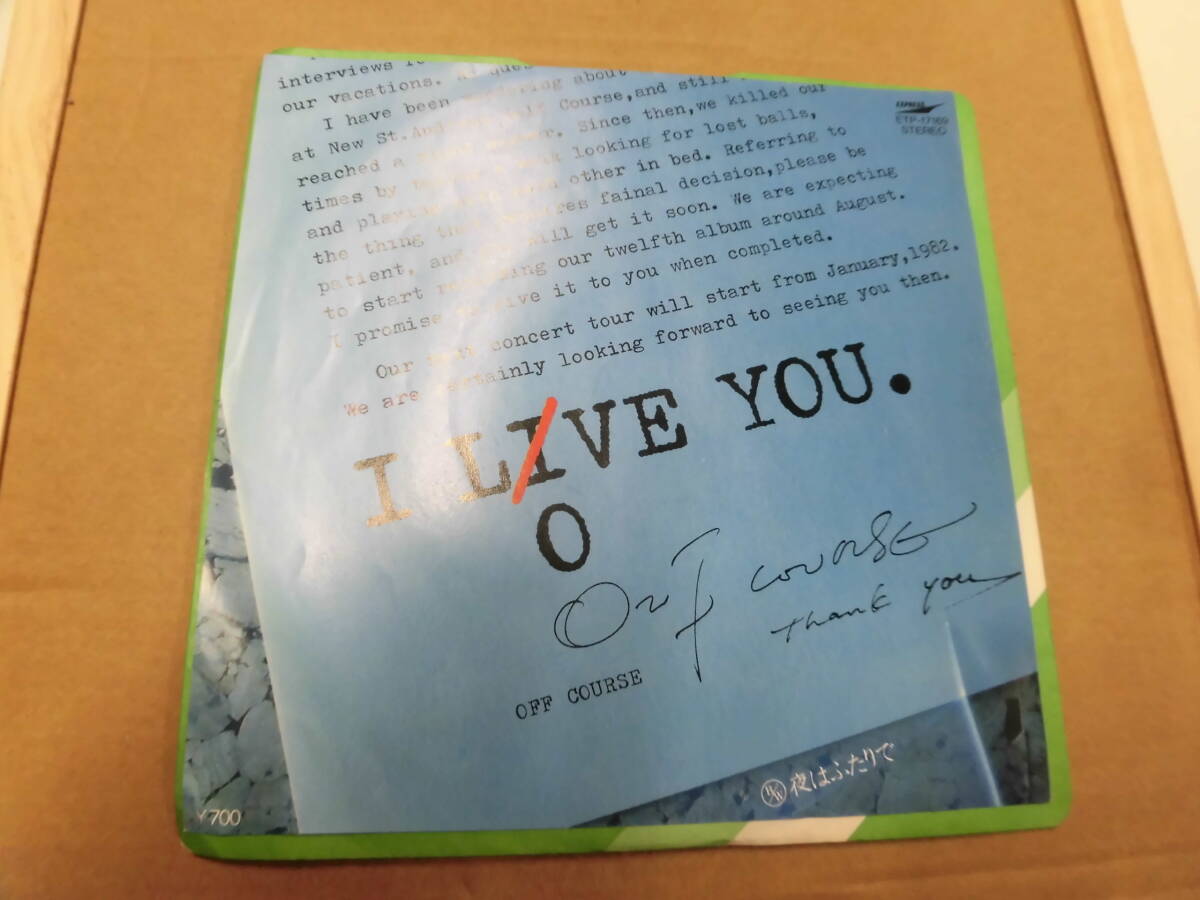 interviews
our vacations.
I have been about
at New St. Course,and still
reached a Since then,we killed our
times by looking for lost balls,
and other in bed. Referring to
the thing fainal decision,please be
patient, and will get it soon. We are expecting
to start our twelfth album around August.
I promise it to you when completed.
Our concert tour will start from January,1982.
We are certainly looking forward to seeing you then.
I LIVE YOU.
O
OFF COURSE
Thank you
OFF COURSE
EXPRESS
ETP-17169
STEREO
B/W 夜はふたりで
¥700